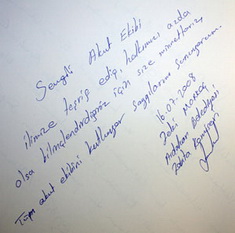 Sevgili Akut Ekibi
İlimize teşrif edip, halkımızı azda
olsa bilinçlendirdiğiniz için size minnettarız,
Tüm akut ekibini kutluyor saygılarımı sunuyorum.
16.07.2008
Zeki
Ardahan Belediyesi
Zabıta